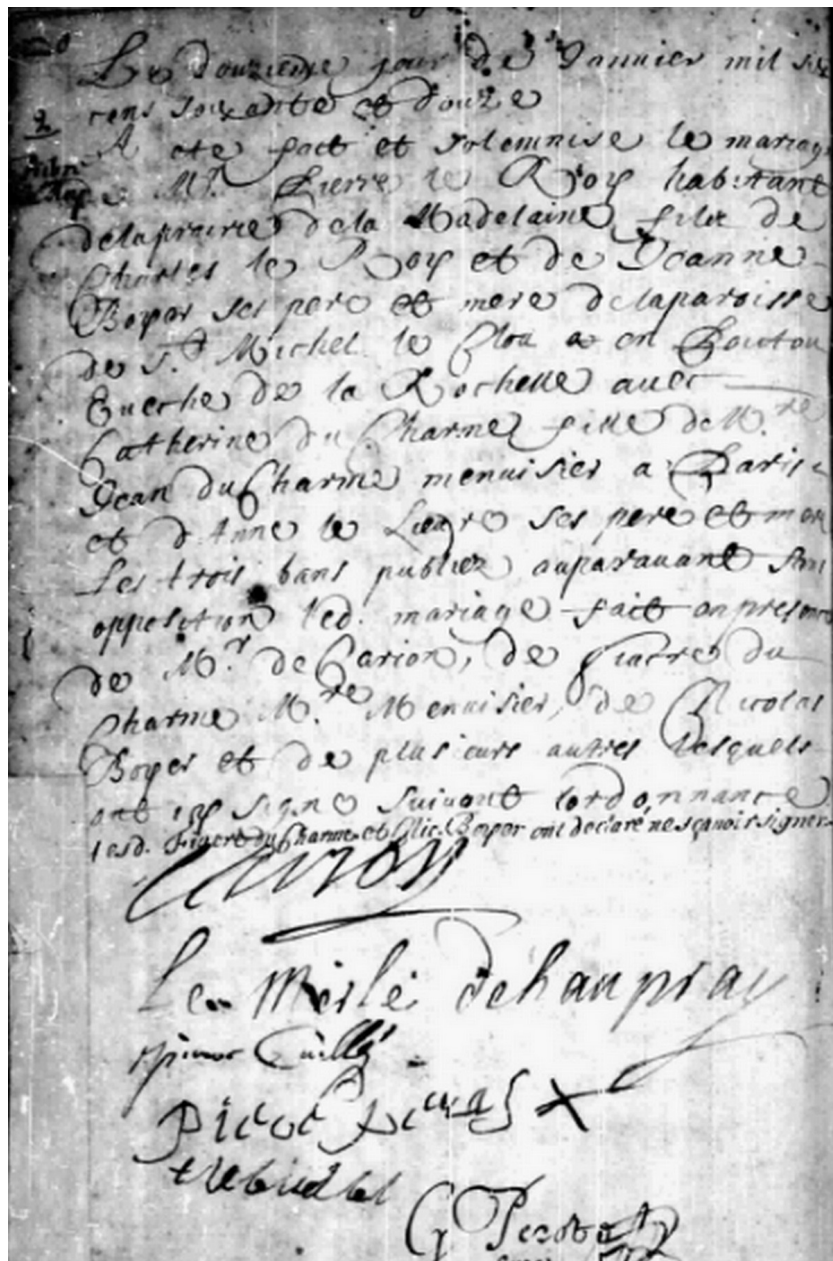 Le Douzieme jour de Janvier mil six
cens soixante et douze
2
A ete fait et solemnise le mariage
Mr. Pierre le Roy habitant
delaprairie dela Madelaine, filz de
Charles le Roy et de Jeanne
Boyer ses pere et mere delaparoisse
de St. Michel le Clou en Poictou
Eueche de la Rochelle avec
Catherine du Charme fille de M.re
Jean du Charme menuisier a Paris
et d'Anne le Liepre ses pere et mere
Les trois bans publiez auparauant sans
opposition led. mariage fait en presence
de Mr. de Carion, de Fiacre du
Charme M.re Menuisier, de Nicolas
Boyer et de plusieurs autres lesquels
ont icy signe suiuant lordonnance
lesd. Fiacre du Charme et Nic. Boyer ont declaré ne sçauoir signer
Carion
Le Merle dehaupray
Cuillé
Picoté
G Perot